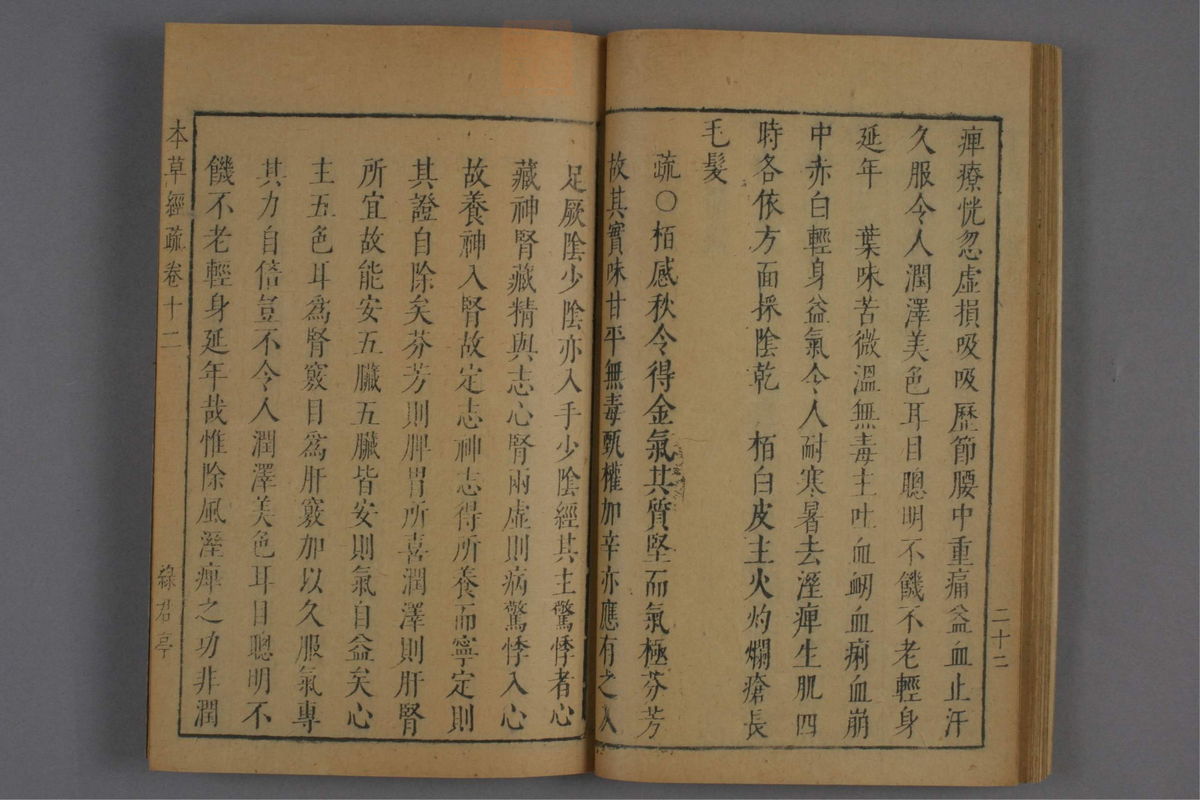 痺療恍忽虛損吸吸歷節腰中重痛益血止汗
久服令人潤澤美色耳目聰明不饑不老輕身
延年　葉味苦微溫無毒主吐血衂血痢血崩
中赤白輕身益氣令人耐寒暑去溼痺生肌四
時各依方面採陰乾　栢白皮主火灼爛瘡長
毛髮
疏〇栢感秋令得金氣其質堅而氣極芬芳
故其實味甘平無毒甄權加辛亦應有之入
二十三
足厥陰少陰亦入手少陰經其主驚悸者心
藏神腎藏精與志心腎兩虛則病驚悸入心
故養神入腎故定志神志得所養而寧定則
其證自除矣芬芳則脾胃所喜潤澤則肝腎
所宜故能安五臟五臟皆安則氣自益矣心
主五色耳爲腎竅目爲肝竅加以久服氣專
其力自倍豈不令人潤澤美色耳目聰明不
饑不老輕身延年哉惟除風溼痺之功非潤
本草經疏卷十二
綠君亭